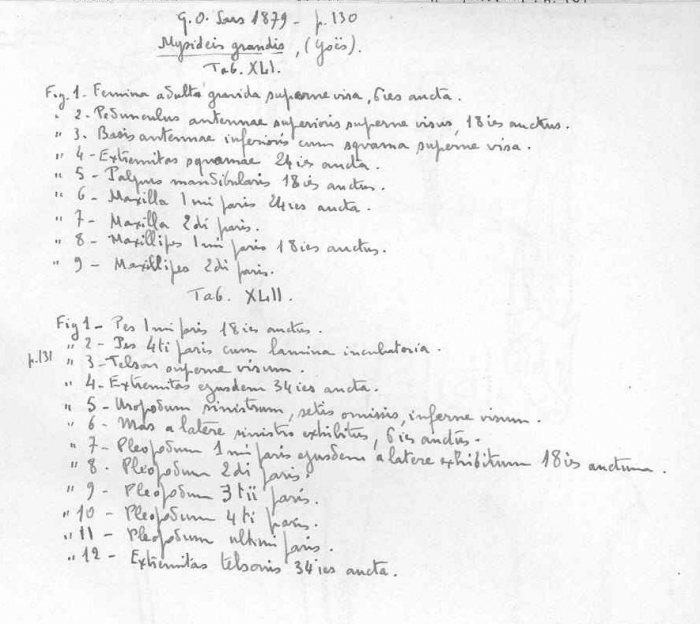 G. O. Sars 1879 - p. 130
Mysideis grandis, (Goës).
Tab. XLI.
Fig. 1 - Femina adulta gravida superne visa, 6ies aucta.
" 2 - Pedunculus antennae superioris superne visus, 18ies auctus.
" 3 - Basis antennae inferioris cum squama superne visa.
" 4 - Extremitas squamae 24ies aucta.
" 5 - Palpus mandibularis 18ies auctus.
" 6 - Maxilla 1mi paris 24ies aucta.
" 7 - Maxilla 2di paris.
" 8 - Maxillipes 1mi paris 18ies auctus.
" 9 - Maxillipes 2di paris.
Tab. XLII.
Fig 1 - Pes 1mi paris 18ies auctus.
" 2 - Pes 4ti paris cum lamina incubatoria.
p. 131 " 3 - Telson superne visum.
" 4 - Extremitas ejusdem 34ies aucta.
" 5 - Uropodum sinistrum, setis omissis, inferne visum.
" 6 - Mas a latere sinistro exhibitus, 6ies auctus.
" 7 - Pleopodum 1mi paris ejusdem a latere exhibitum 18ies auctum.
" 8 - Pleopodum 2di paris.
" 9 - Pleopodum 3tii paris.
" 10 - Pleopodum 4ti paris.
" 11 - Pleopodum ultimi paris.
" 12 - Extremitas telsonis 34ies aucta.